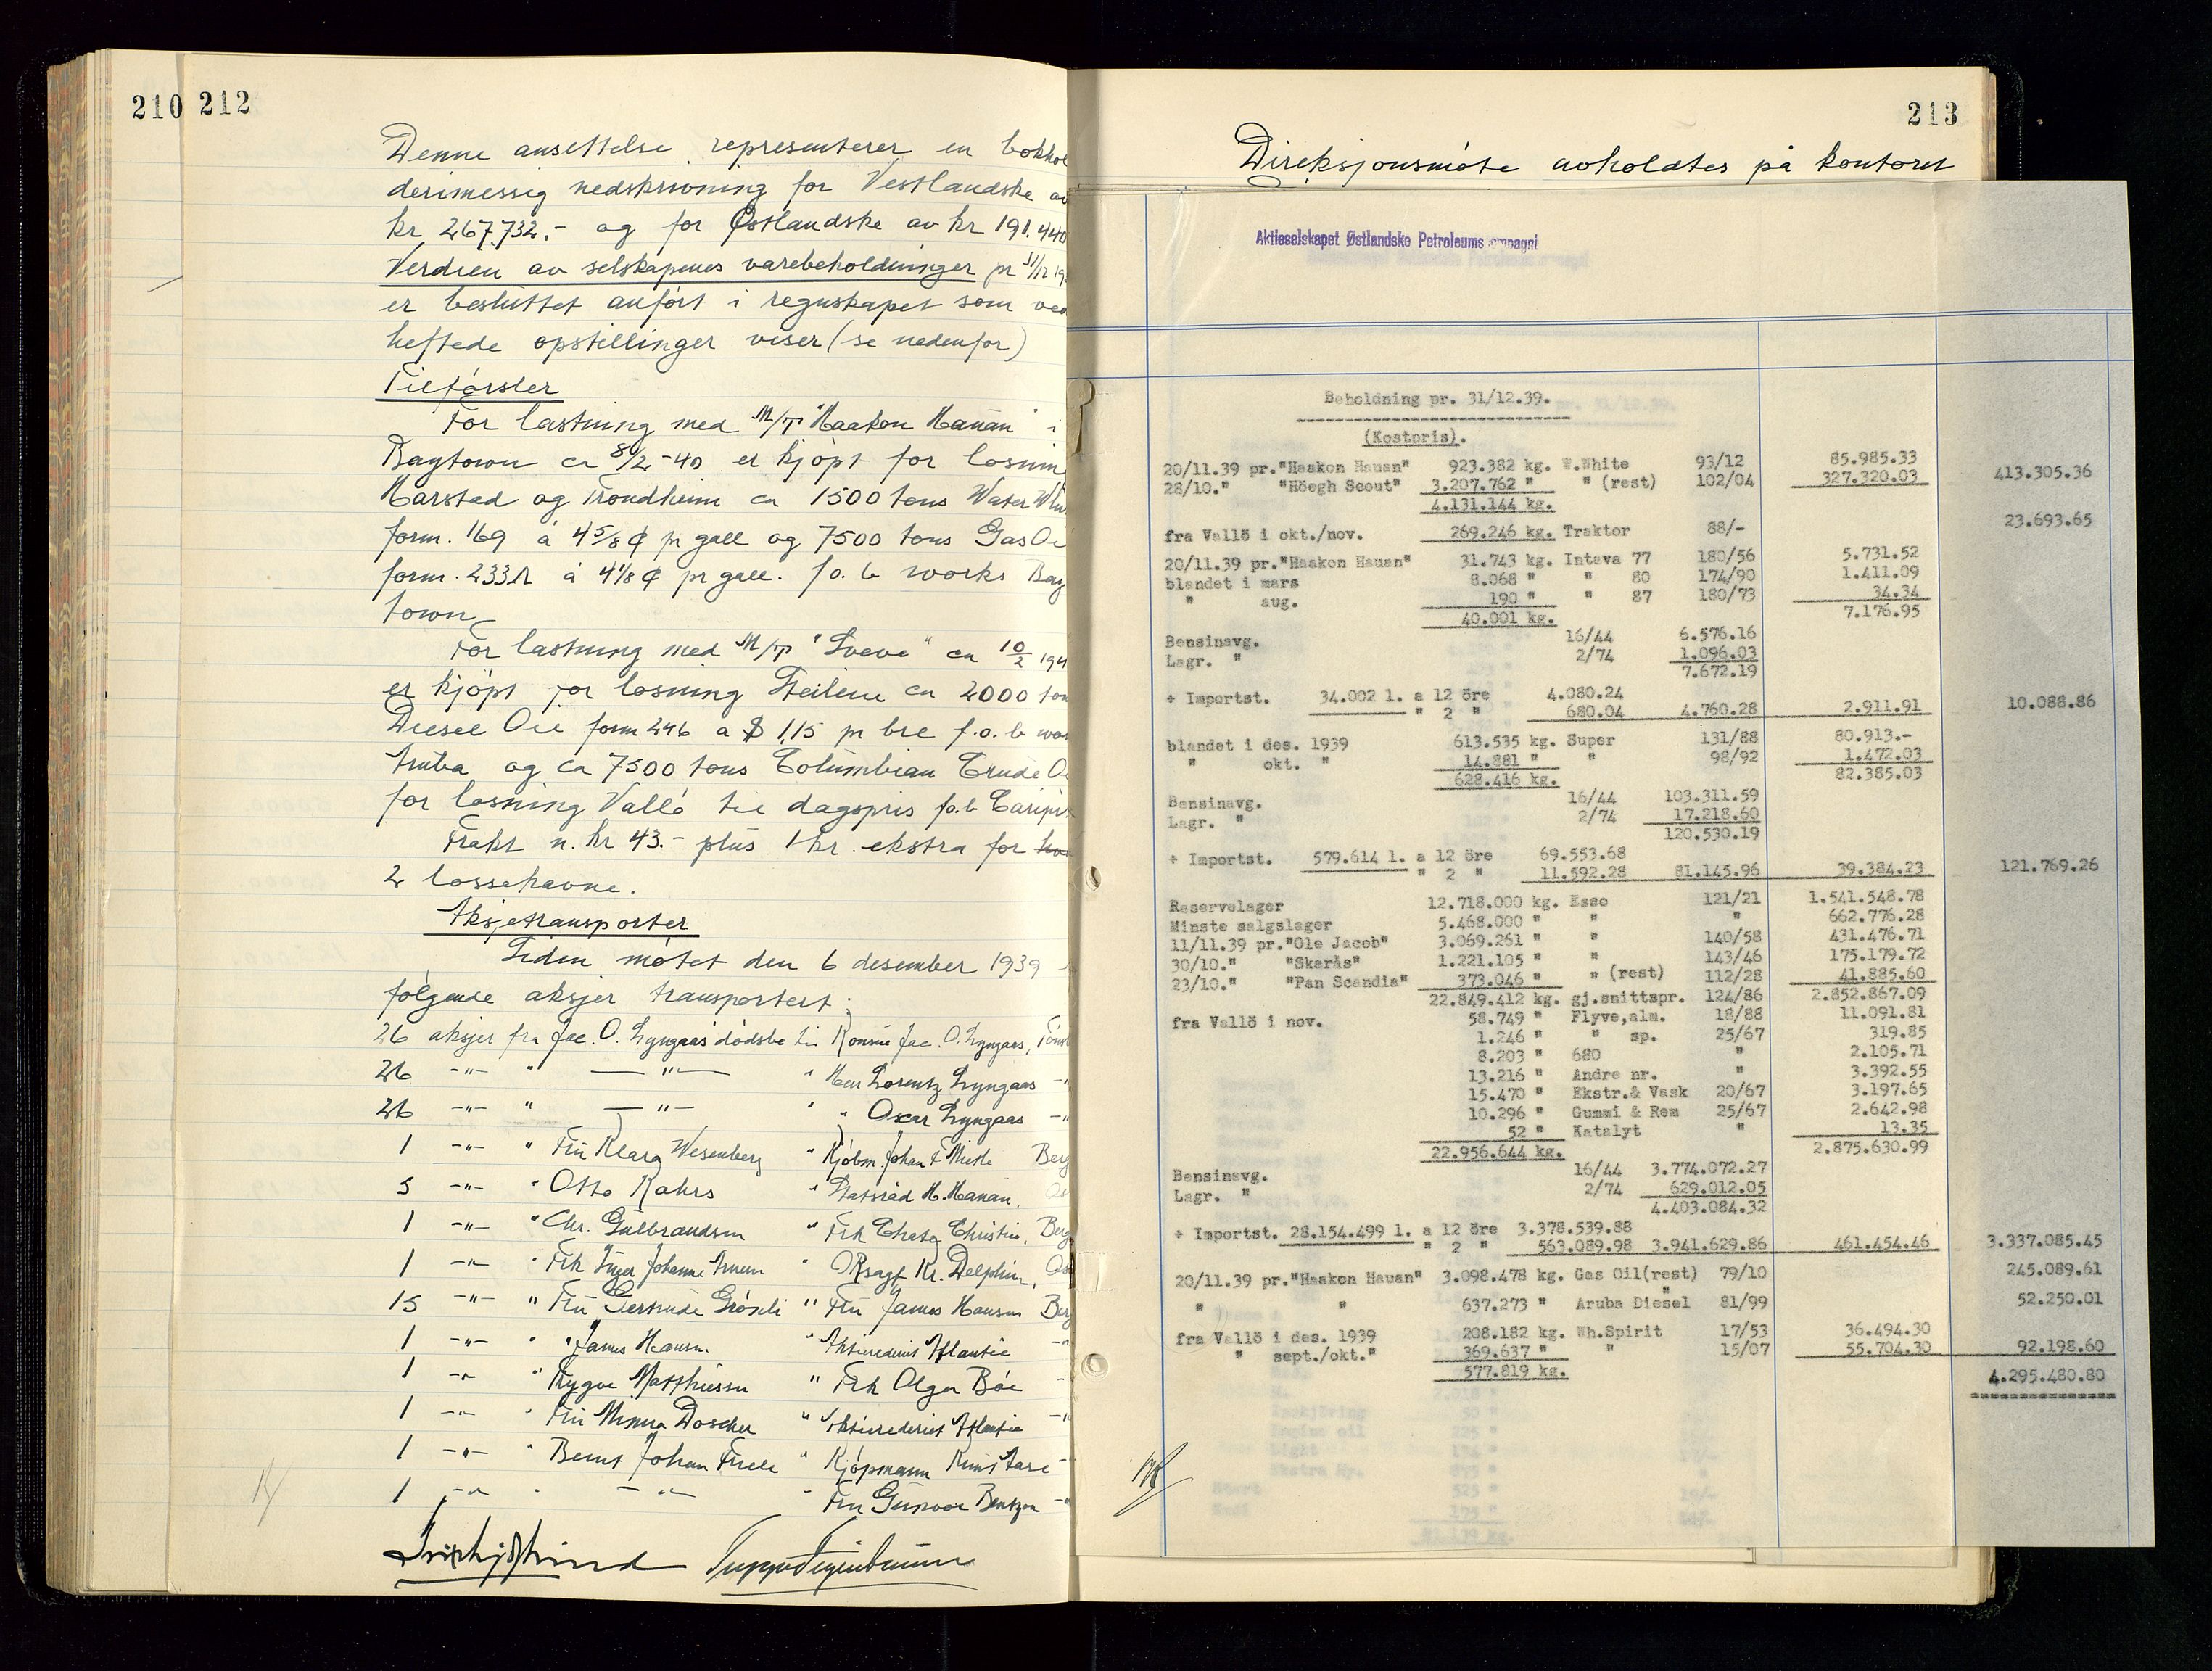 210 212
Denne ansettelse representerer en bokhol
derimessig nedskrivning for Vestlandske av
kr 267.732.- og for Østlandske av kr 191.440
Verdien av selskapenes varebeholdninger pr 31/12 19
er besluttet anført i regnskapet som ved
heftede opstillinger viser (se nedenfor)
Tilførsler
For lastning med M/T "Haakon Hauan" i
Baytown ca 8/2-40 er kjøpt for losning
Harstad og Trondheim ca 1500 tons Water Whi
form. 169 á 4 5/8 ¢ pr gall og 7500 tons Gas Oi
form. 233A á 4 1/8 ¢ pr gall. f.o.b works Bay
town
For lastning med M/T "Sveve" ca 10/2 194
er kjøpt for losning Steilene ca 2000 ton
Diesel Oil form 246 a $ 1,15 pr bbl f.o.b wor
Aruba og ca 7500 tons Columbian Crude O
for losning Vallö til dagspris fo.b Caripit
Frakt n. kr 43.- plus 1 kr. ekstra for
2 lossehavne.
Aksjetransporter
Siden møtet den 6 desember 1939
følgende aksjer transportert:
26 aksjer fra Jac. O. Lyngaas dødsbo til Konsul Jac. O. Lyngaas, Töns
26 -"- " -"- " Herr Lorentz Lyngaas -"
26 -"- " -"- " " Oscar Lyngaas -"
1 -"- " Fru Klara Wesenberg " Kjøbm. Johan F Mietle Berg
5 -"- " Otto Kahrs " Statsråd H. Hauan,
1 -"- " Chr. Gulbrandsen " Frk Chata Christie, Berg
1 -"- " Frk Inger Johanne Arnesen " ORsagf Kr. Delphin,
15 -"- " Fru Gertrude Grössli " Fru James Hansen Berg
1 -"- " " James Hansen. " Aktierederiet Atlantic -"
1 -"- " Trygve Matthiessen " Frk Olga Böe -
1 -"- " Fru Minna Doscher " Aktierederiet Atlantic -"
1 -"- " Bernt Johan Friele " Kjøpmann Knut Aase -"
1 -"- " -"- " Fru Gunvor Bentzon -"
213
Direksjonsmøte avholdtes på kontoret
Aktieselskapet Østlandske Petroleumscompagni
Beholdning pr. 31/12.39.
(Kostpris).
20/11.39 pr."Haakon Hauan" 923.382 kg. W.White 93/12 85.985.33
28/10." "Höegh Scout" 3.207.762 " " (rest) 102/04 327.320.03 413.305.36
4.131.144 kg.
fra Vallö i okt./nov. 269.246 kg. Traktor 88/- 23.693.65
20/11.39 pr."Haakon Hauan" 31.743 kg. Intava 77 180/56 5.731.52
blandet i mars 8.068 " " 80 174/90 1.411.09
" aug. 190 " " 87 180/73 34.34
40.001 kg. 7.176.95
Bensinavg. 16/44 6.576.16
Lagr. " 2/74 1.096.03
7.672.19
+ Importst. 34.002 l. a 12 öre 4.080.24
" 2 " 680.04 4.760.28 2.911.91 10.088.86
blandet i des. 1939 613.535 kg. Super 131/88 80.913.-
" okt. " 14.881 " " 98/92 1.472.03
628.416 kg. 82.385.03
Bensinavg. 16/44 103.311.59
Lagr. " 2/74 17.218.60
120.530.19
+ Importst. 579.614 l. a 12 öre 69.553.68
" 2 " 11.592.28 81.145.96 39.384.23 121.769.26
Reservelager 12.718.000 kg. Esso 121/21 1.541.548.78
Minste salgslager 5.468.000 " " " 662.776.28
11/11.39 pr."Ole Jacob" 3.069.261 " " 140/58 431.476.71
30/10." "Skarås" 1.221.105 " " 143/46 175.179.72
23/10." "Pan Scandia" 373.046 " " (rest) 112/28 41.885.60
22.849.412 kg. gj.snittspr. 124/86 2.852.867.09
fra Vallö i nov. 58.749 " Flyve,alm. 18/88 11.091.81
1.246 " " sp. 25/67 319.85
8.203 " 680 " 2.105.71
13.216 " Andre nr. " 3.392.55
15.470 " Ekstr.& Vask 20/67 3.197.65
10.296 " Gummi & Rem 25/67 2.642.98
52 " Katalyt " 13.35
22.956.644 kg. 2.875.630.99
Bensinavg. 16/44 3.774.072.27
Lagr. " 2/74 629.012.05
4.403.084.32
+ Importst. 28.154.499 l. a 12 öre 3.378.539.88
" 2 " 563.089.98 3.941.629.86 461.454.46 3.337.085.45
20/11.39 pr."Haakon Hauan" 3.098.478 kg. Gas Oil(rest) 79/10 245.089.61
" " 637.273 " Aruba Diesel 81/99 52.250.01
fra Vallö i des. 1939 208.182 kg. Wh.Spirit 17/53 36.494.30
" sept./okt." 369.637 " " 15/07 55.704.30 92.198.60
577.819 kg. 4.295.480.80